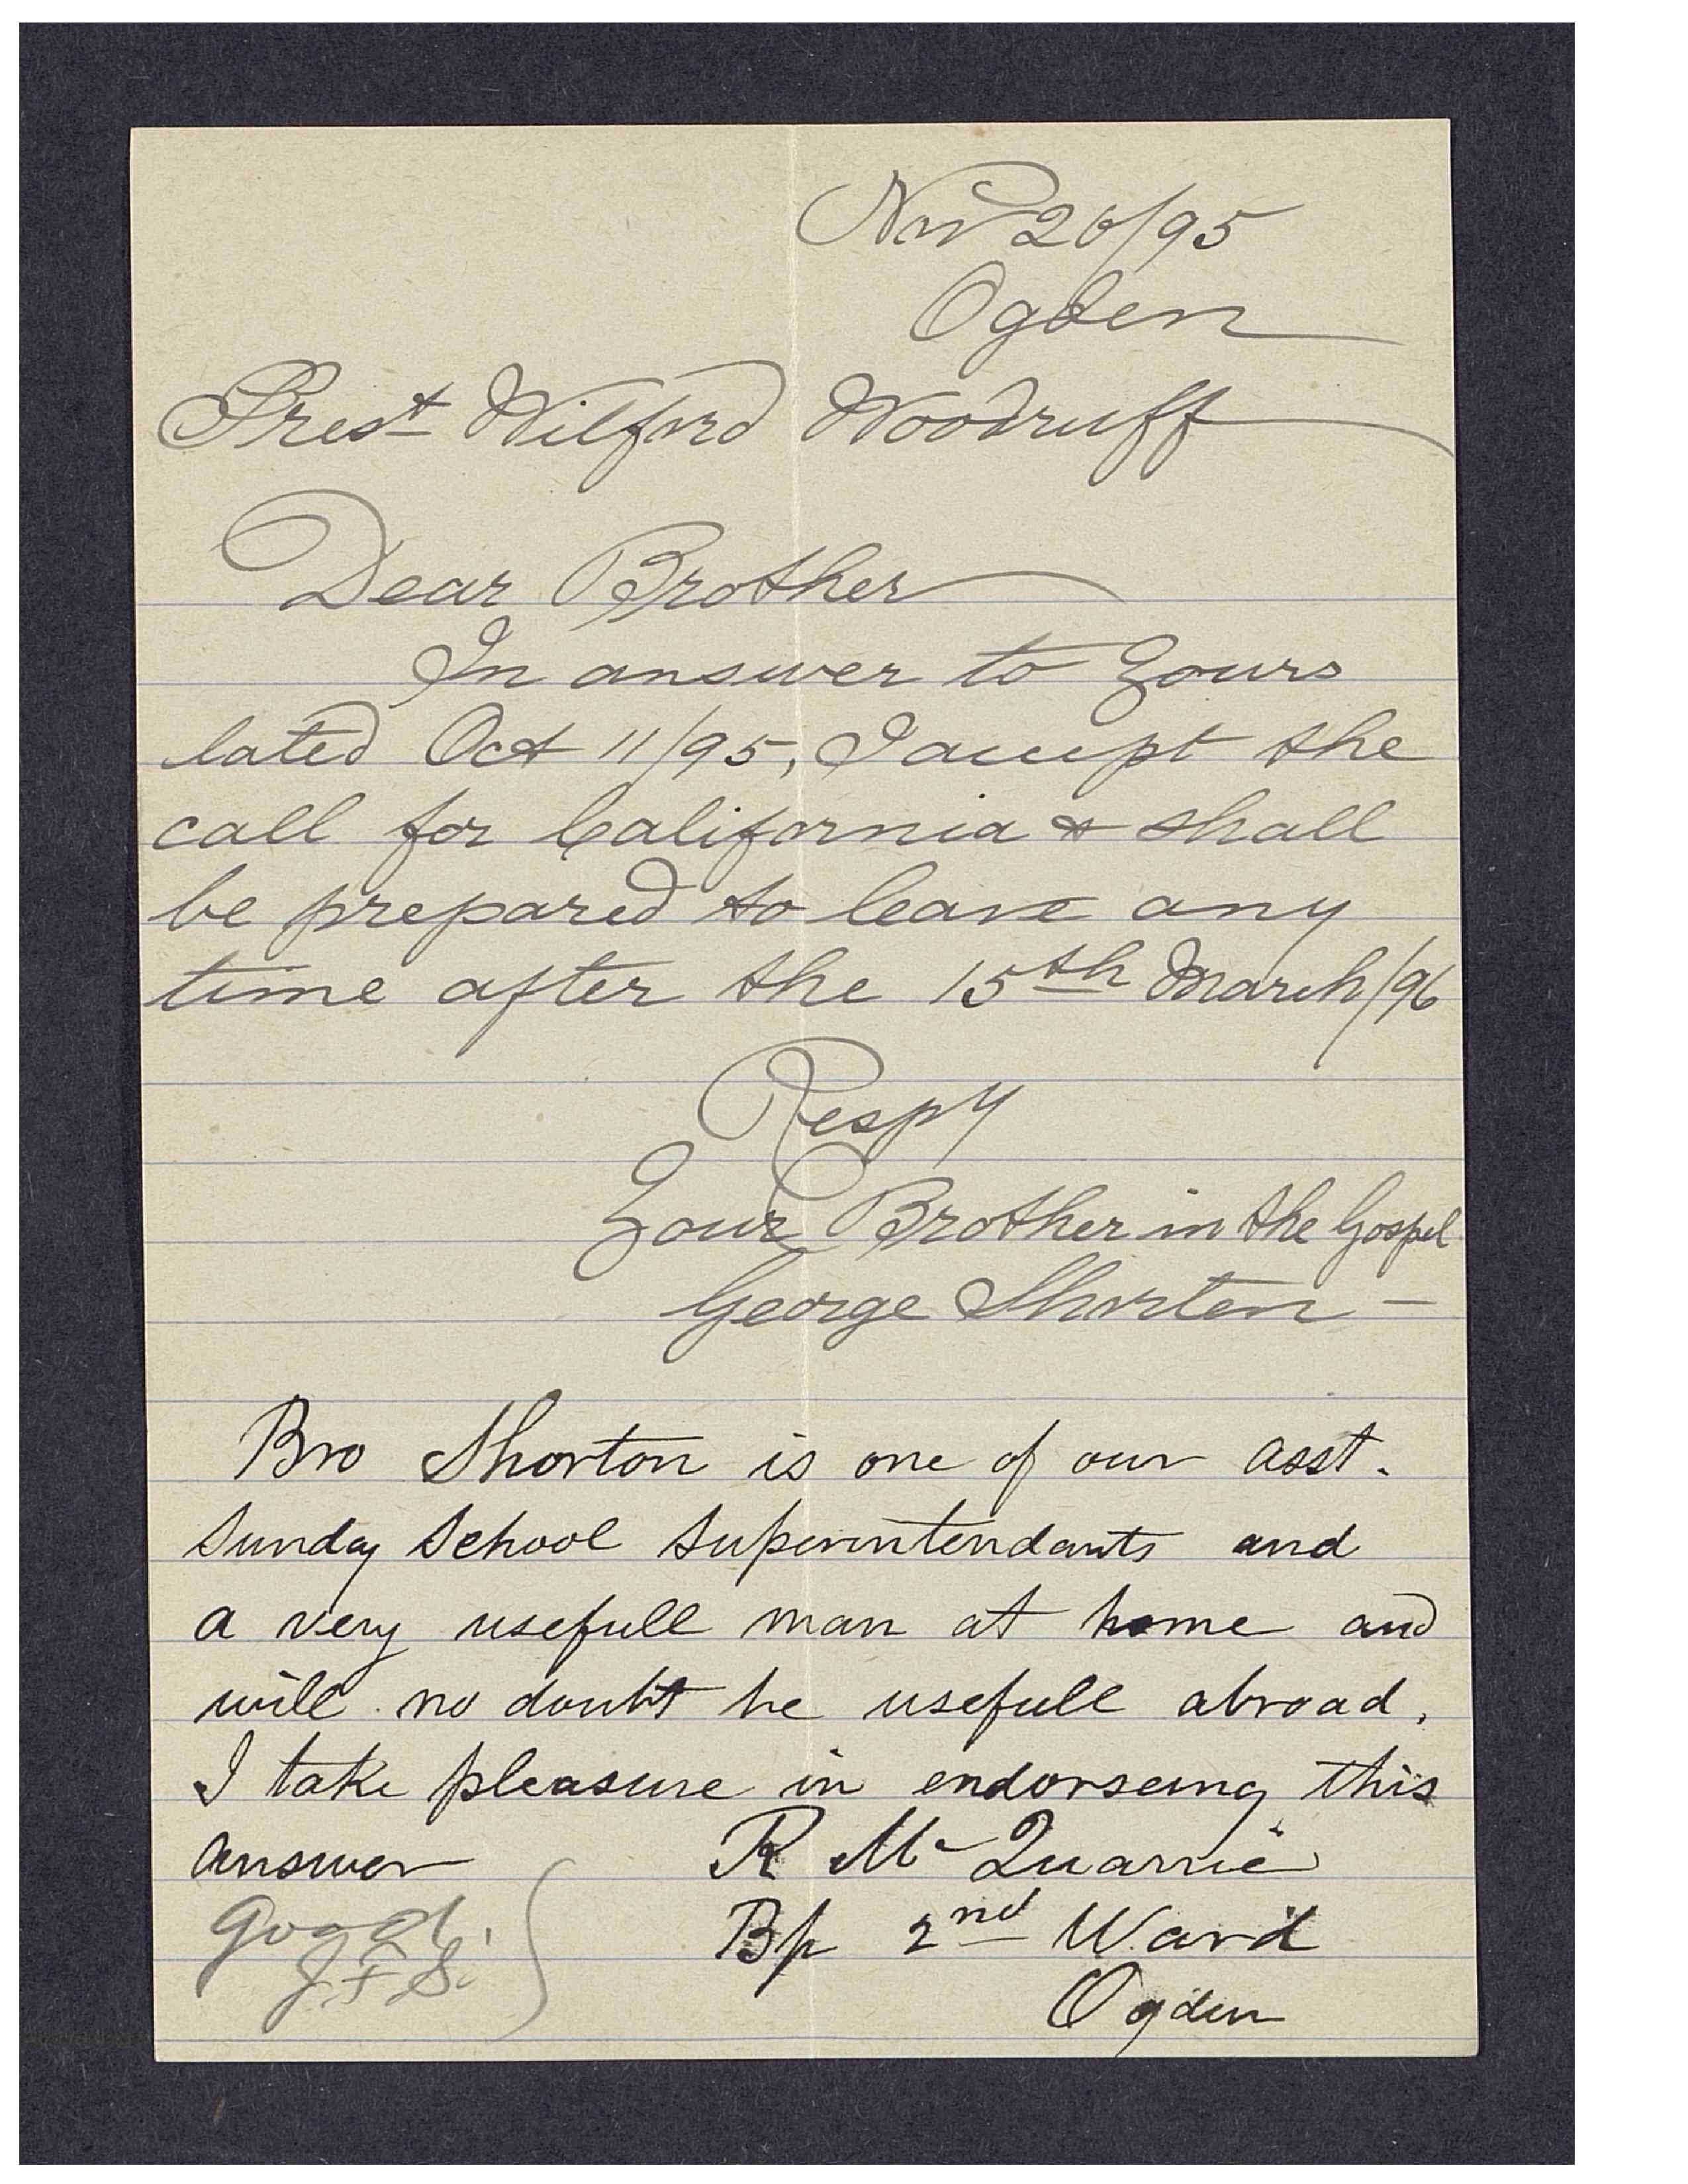 Nov 20/95
Ogden
Prest Wilford Woodruff
Dear Brother
In answer to Yours
lated Oct 11/95, I accept the
call for California & shall
be prepared to leave any
time after the 15th March/96
Respy
Your Brother in the Gospel
George Shorten -
Bro Shorton is one of our asst.
Sunday School Superintendants and
a very usefull man at home and
will no doubt be usefull abroad.
I take pleasure in endorseing this
answer R Mc Quarrie
Bp 2nd Ward
Ogden
Good.
J. F. S.